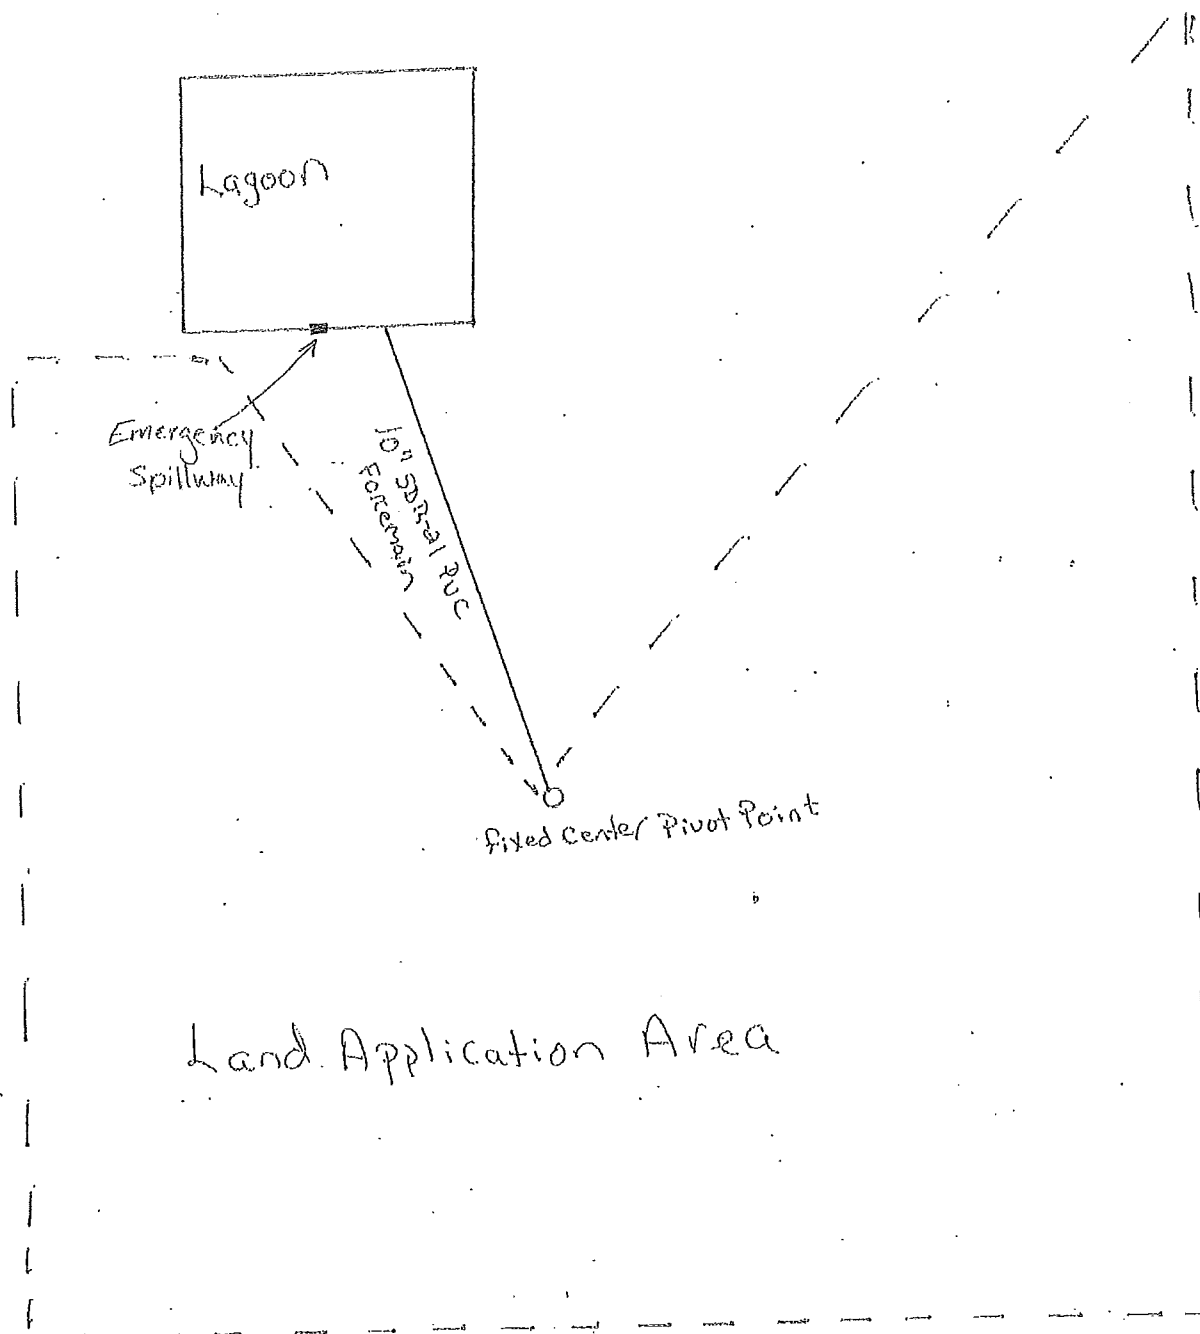 Lagoon
Emergency
Spillway
10" SDR-21 PVC
Forcemain
fixed Center Pivot Point
Land Application Area